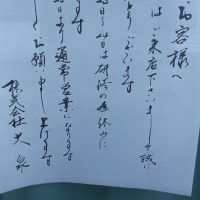 お客様へ
はご来店下さいまして誠に
うございます
日〜24日は研修の為休みに
ます
より通常営業になります
しくお願い申し上げます
株式会社大泉